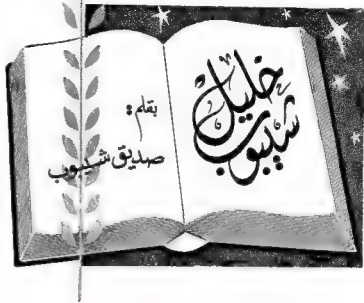 خليل
شيبوب
بقلم:
صديق شيبوب